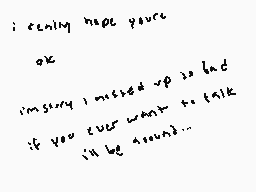 i really hope youre
ok
im sorry i messed up so bad
if you ever want to talk
i'll be around...